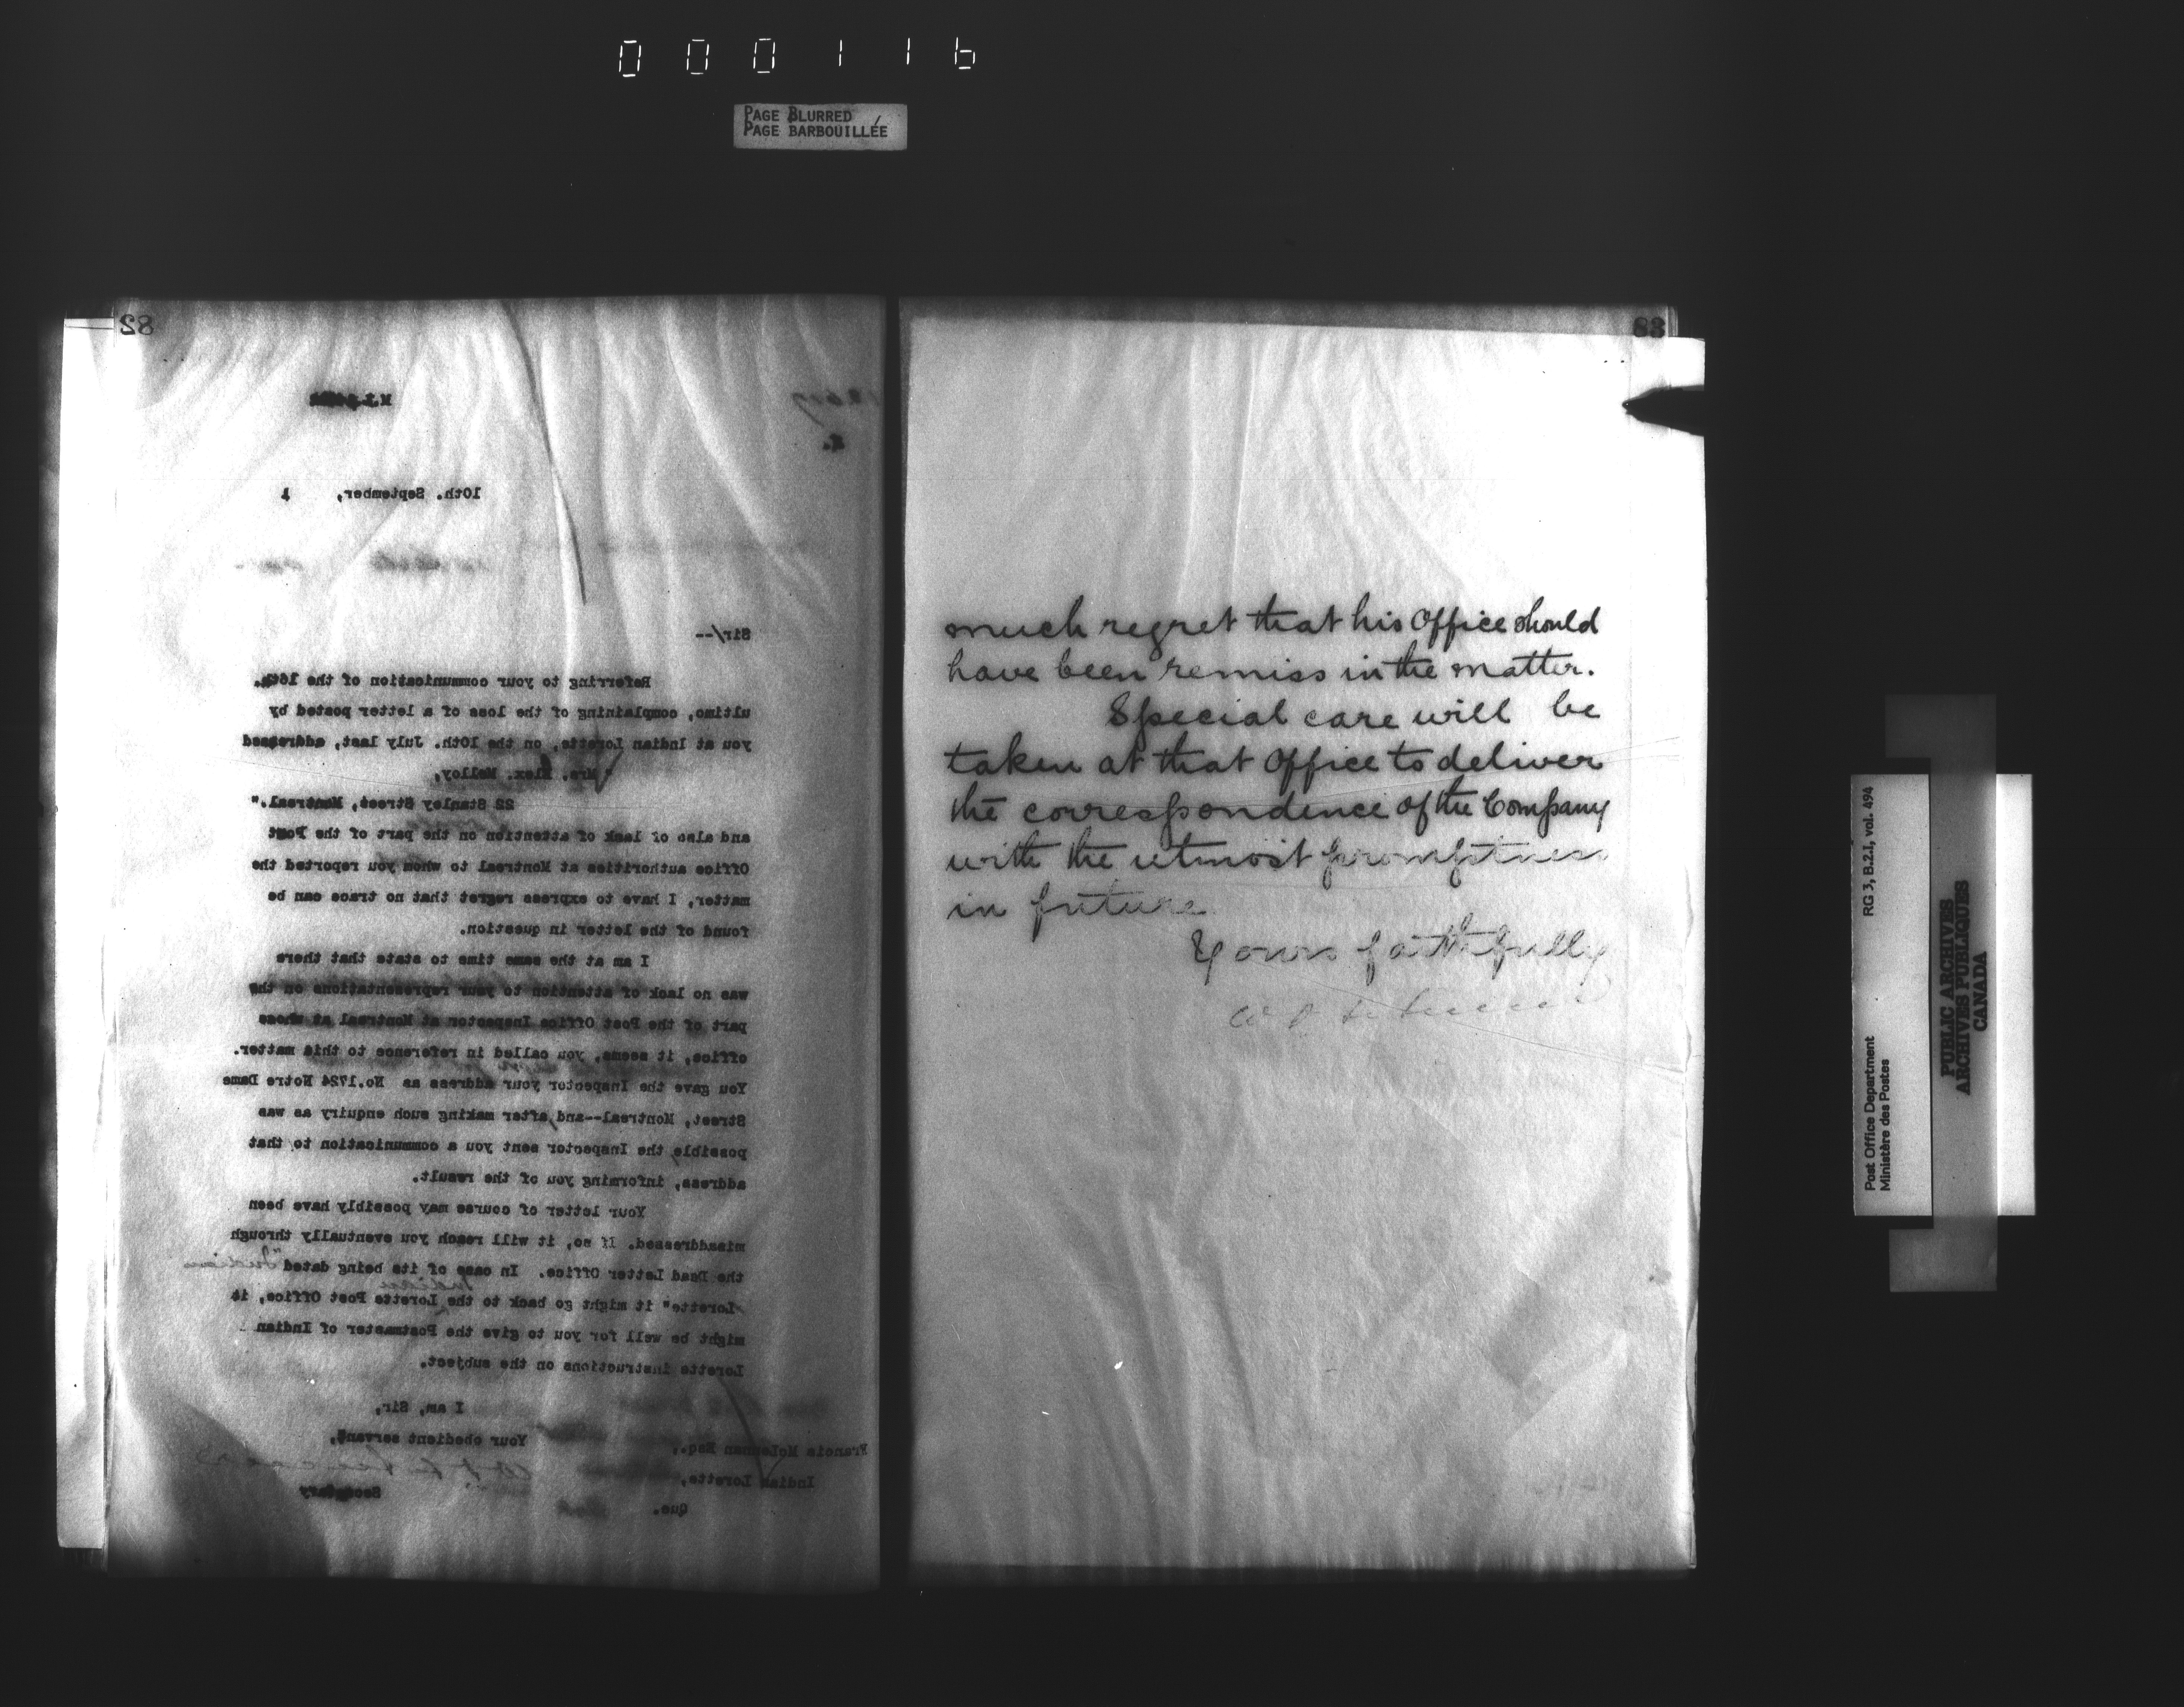 000116
PAGE BLURRED
PAGE BARBOUILLÉE
82
10th. September, 1
Sir/--
Referring to your communication of the 16th.
ultimo, complaining of the loss of a letter posted by
you at Indian Lorette, on the 10th. July last, addressed
"Mrs. Alex. Molloy,
22 Stanley Street, Montreal."
and also of lack of attention on the part of the Post
Office authorities at Montreal to whom you reported the
matter, I have to express regret that no trace can be
found of the letter in question.
I am at the same time to state that there
was no lack of attention to your representations on the
part of the Post Office Inspector at Montreal at whose
office, it seems, you called in reference to this matter.
You gave the Inspector your address as No.1724 Notre Dame
Street, Montreal--and, after making such enquiry as was
possible, the Inspector sent you a communication to that
address, informing you of the result.
Your letter of course may possibly have been
misaddressed. If so, it will reach you eventually through
the Dead Letter Office. In case of its being dated "Indian
Lorette" it might go back to the Indian Lorette Post Office, it
might be well for you to give the Postmaster of Indian
Lorette instructions on the subject.
I am, Sir,
Your obedient servant,
Secretary
Francis McLennan Esq.,
Indian Lorette,
Que.
83
much regret that his Office should
have been remiss in the matter.
Special care will be
taken at that Office to deliver
the correspondence of the Company
with the utmost promptness
in future
Yours faithfully
Post Office Department
Ministère des Postes
RG 3, B.2.I, vol. 494
PUBLIC ARCHIVES
ARCHIVES PUBLIQUES
CANADA